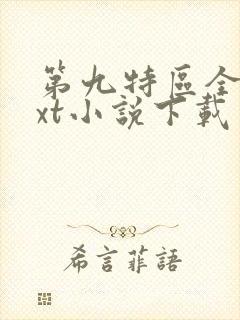 第九特區全
xt小說下載
希言菲語